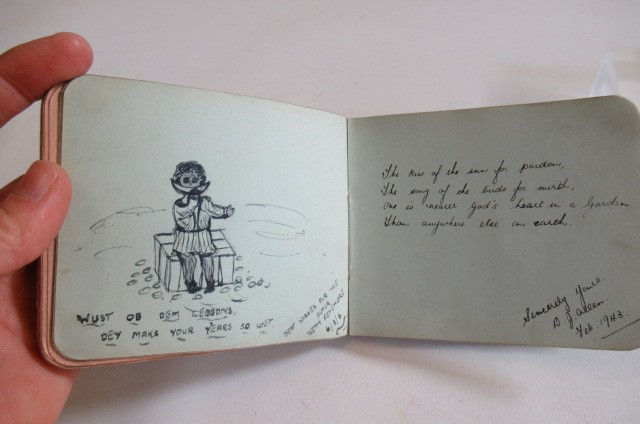 WUST OB DEM MELONS,
DEY MAKS YOUR YEARS SO WET.
The kiss of the sun for pardon,
The song of the birds for mirth,
One is nearer God's heart in a Garden
Than anywhere else on earth.
Sincerely Yours.
B. J. Allen.
Feb. 1943.